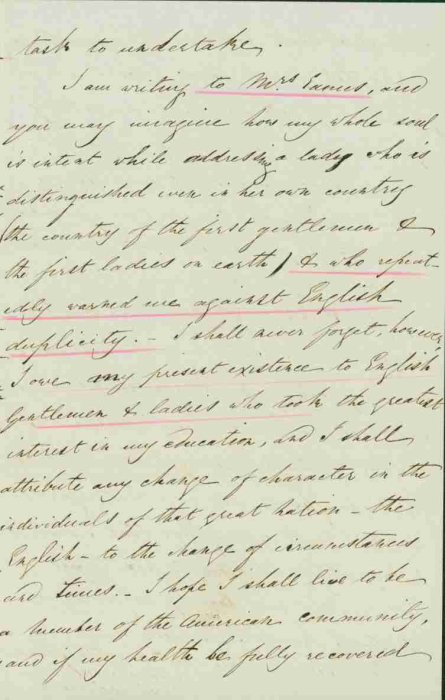 task to undertake.
I am writing to Mrs Eames, and
you may imagine how my whole soul
is intent while addressing a lady who is
distinguished even in her own country
(the country of the first gentlemen &
the first ladies on earth) & who repeat-
edly warned me against English
duplicity. - I shall never forget, however,
I owe my present existence to English
Gentlemen & ladies who took the greatest
interest in my education, and I shall
attribute any change of character in the
individuals of that great nation - the
English - to the change of circumstances
and times. - I hope I shall live to be
a member of the American community,
and if my health be fully recovered